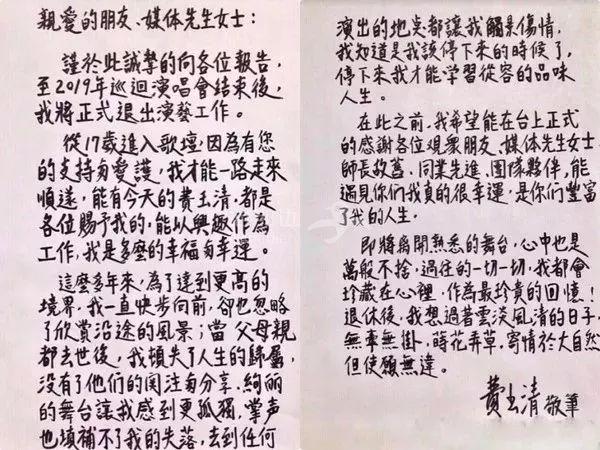 親愛的朋友、媒体先生女士：
謹於此誠摯的向各位報告，
至2019年巡迴演唱會結束後，
我將正式退出演藝工作。
從17歲進入歌壇，因為有您
的支持与愛護，我才能一路走來
順遂，能有今天的費玉清，都是
各位賜予我的，能以興趣作為
工作，我是多麼的幸福与幸運。
這麼多年來，為了達到更高的
境界，我一直快步向前，卻也忽略
了欣賞沿途的風景；當父母親
都去世後，我頓失了人生的歸屬，
没有了他們的関注与分享，絢麗
的舞台讓我感到更孤獨，掌声
也填補不了我的失落，去到任何
演出的地点都讓我觸景傷情，
我知道是我該停下來的時候了，
停下來我才能学習從容的品味
人生。
在此之前，我希望能在台上正式
的感謝各位观衆朋友、媒体先生女士、
師長故舊、同業先進、团隊夥伴，能
遇見你們我真的很幸運，是你們豐富
了我的人生。
即將离開熟悉的舞台，心中也是
萬般不捨，過往的一切一切，我都會
珍藏在心裡，作為最珍貴的回憶！
退休後，我想過著雲淡風清的日子，
無牽無掛，蒔花弄草，寄情於大自然
但使願無違。
費玉清 敬筆